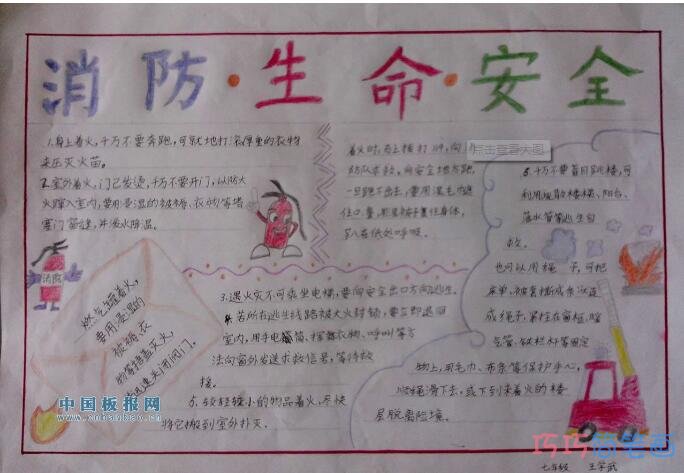 消防·生命·安全
1.身上着火,千万不要奔跑,可就地打滚用厚重的衣物
来压灭火苗。
2.室外着火,门已发烫,千万不要开门,以防大
火蹿入室内,要用浸湿的被褥、衣物等堵
塞门窗缝,并泼水降温。
着火时,马上拨打119,向
点击查看大图
防队求救,向安全地方跑,
一旦跑不出去,要用湿毛巾
住口鼻,
趴在低处呼吸。
6.千万不要盲目跳楼,可
利用疏散楼梯、阳台、
落水管等逃生自
救。
也可以用绳子,可把
床单、被套撕成条状连
成绳子,紧拴在窗框、暖
气管、铁栏杆等固定
物上,用毛巾、布条等保护手心,
顺绳滑下去,或下到未着火的楼
层脱离险境。
消防
燃气罐着火,
要用浸湿的
被褥衣
物等捂盖灭火,
并迅速关闭阀门。
3.遇火灾不可乘坐电梯,要向安全出口方向逃生。
若所在逃生线路被大火封锁,要立即退回
室内,用手电筒、挥舞衣物、呼叫等方
法向窗外发送求救信号,等待救
援。
5.较轻较小的物品着火,尽快
将它搬到室外扑灭。
中国板报网
七年级 王宇武